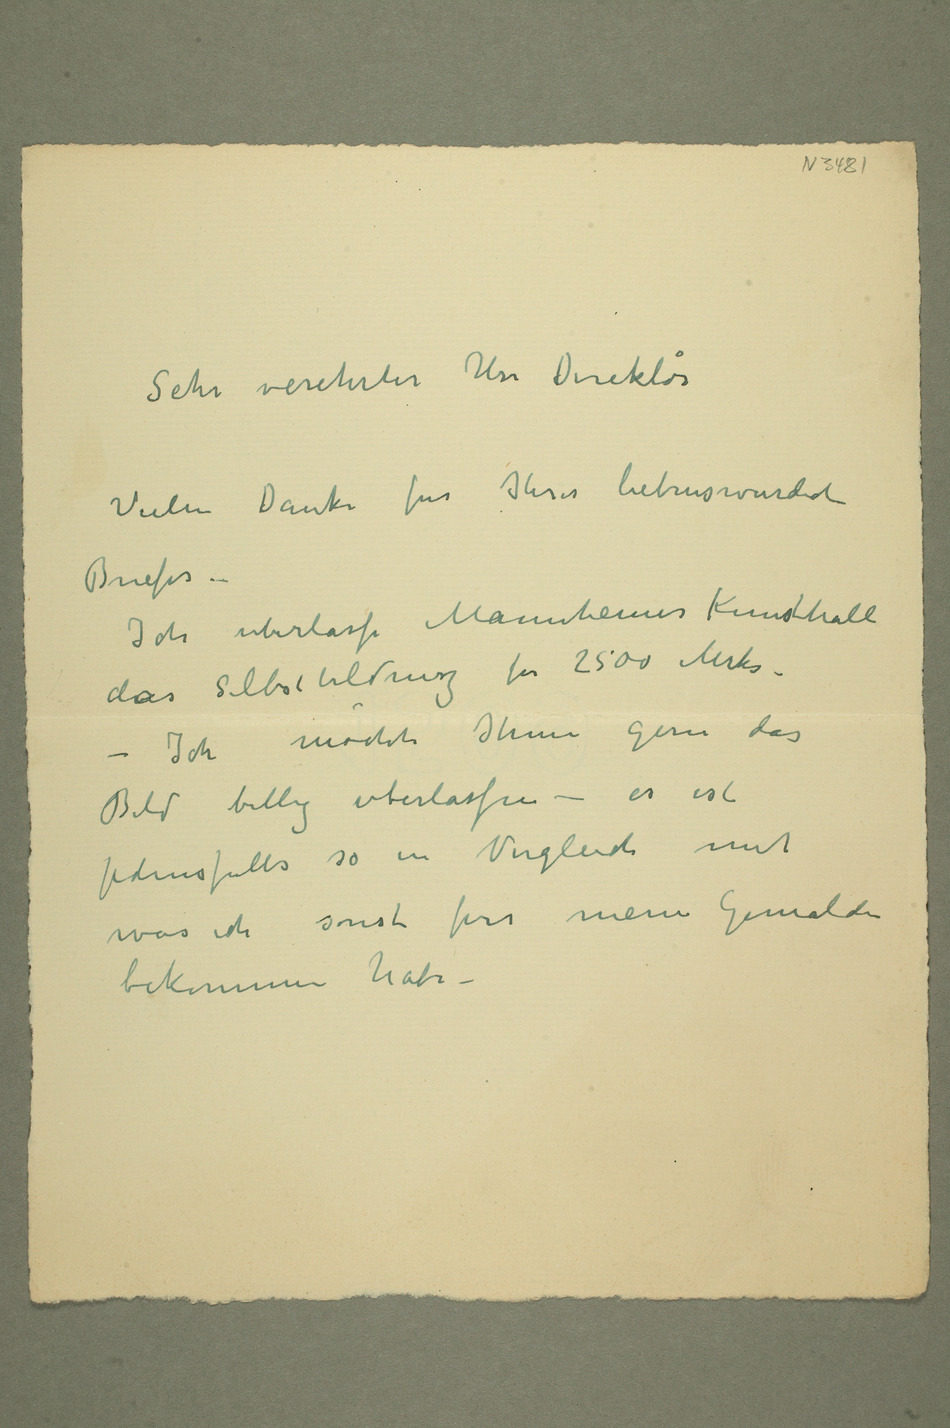 N 3481
Sehr verehrter Herr Direktor
Vielen Danke für Ihres liebenswürdiet
Briefes –
Ich uberlasse Mannheimer Kunsthalle
das Selbstbildnisz für 2500 Merks –
– Ich möchte Ihnen gerne das
Bild billig uberlassen – es ist
jedensfalls so im Vergleich mit
was ich sonst für meine Gemalde
bekommen habe –